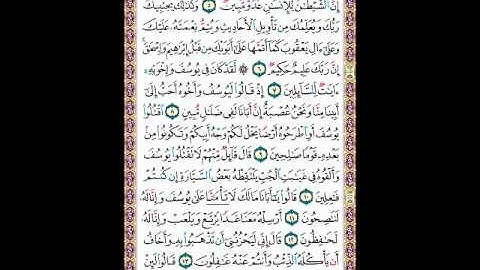 إِنَّ الشَّيْطَٰنَ لِلْإِنسَٰنِ عَدُوٌّ مُّبِينٌ ٥ وَكَذَٰلِكَ يَجْتَبِيكَ
رَبُّكَ وَيُعَلِّمُكَ مِن تَأْوِيلِ الْأَحَادِيثِ وَيُتِمُّ نِعْمَتَهُۥ عَلَيْكَ
وَعَلَىٰٓ ءَالِ يَعْقُوبَ كَمَآ أَتَمَّهَا عَلَىٰٓ أَبَوَيْكَ مِن قَبْلُ إِبْرَٰهِيمَ وَإِسْحَٰقَ
إِنَّ رَبَّكَ عَلِيمٌ حَكِيمٌ ٦ ۞ لَّقَدْ كَانَ فِى يُوسُفَ وَإِخْوَتِهِۦٓ
ءَايَٰتٌ لِّلسَّآئِلِينَ ٧ إِذْ قَالُوا۟ لَيُوسُفُ وَأَخُوهُ أَحَبُّ إِلَىٰٓ
أَبِينَا مِنَّا وَنَحْنُ عُصْبَةٌ إِنَّ أَبَانَا لَفِى ضَلَٰلٍ مُّبِينٍ ٨ اقْتُلُوا۟
يُوسُفَ أَوِ اطْرَحُوهُ أَرْضًا يَخْلُ لَكُمْ وَجْهُ أَبِيكُمْ وَتَكُونُوا۟ مِنۢ
بَعْدِهِۦ قَوْمًا صَٰلِحِينَ ٩ قَالَ قَآئِلٌ مِّنْهُمْ لَا تَقْتُلُوا۟ يُوسُفَ
وَأَلْقُوهُ فِى غَيَٰبَتِ الْجُبِّ يَلْتَقِطْهُ بَعْضُ السَّيَّارَةِ إِن كُنتُمْ
فَٰعِلِينَ ١٠ قَالُوا۟ يَٰٓأَبَانَا مَا لَكَ لَا تَأْمَ۫نَّا عَلَىٰ يُوسُفَ وَإِنَّا لَهُۥ
لَنَٰصِحُونَ ١١ أَرْسِلْهُ مَعَنَا غَدًا يَرْتَعْ وَيَلْعَبْ وَإِنَّا لَهُۥ
لَحَٰفِظُونَ ١٢ قَالَ إِنِّى لَيَحْزُنُنِىٓ أَن تَذْهَبُوا۟ بِهِۦ وَأَخَافُ
أَن يَأْكُلَهُ الذِّئْبُ وَأَنتُمْ عَنْهُ غَٰفِلُونَ ١٣ قَالُوا۟ لَئِنْ